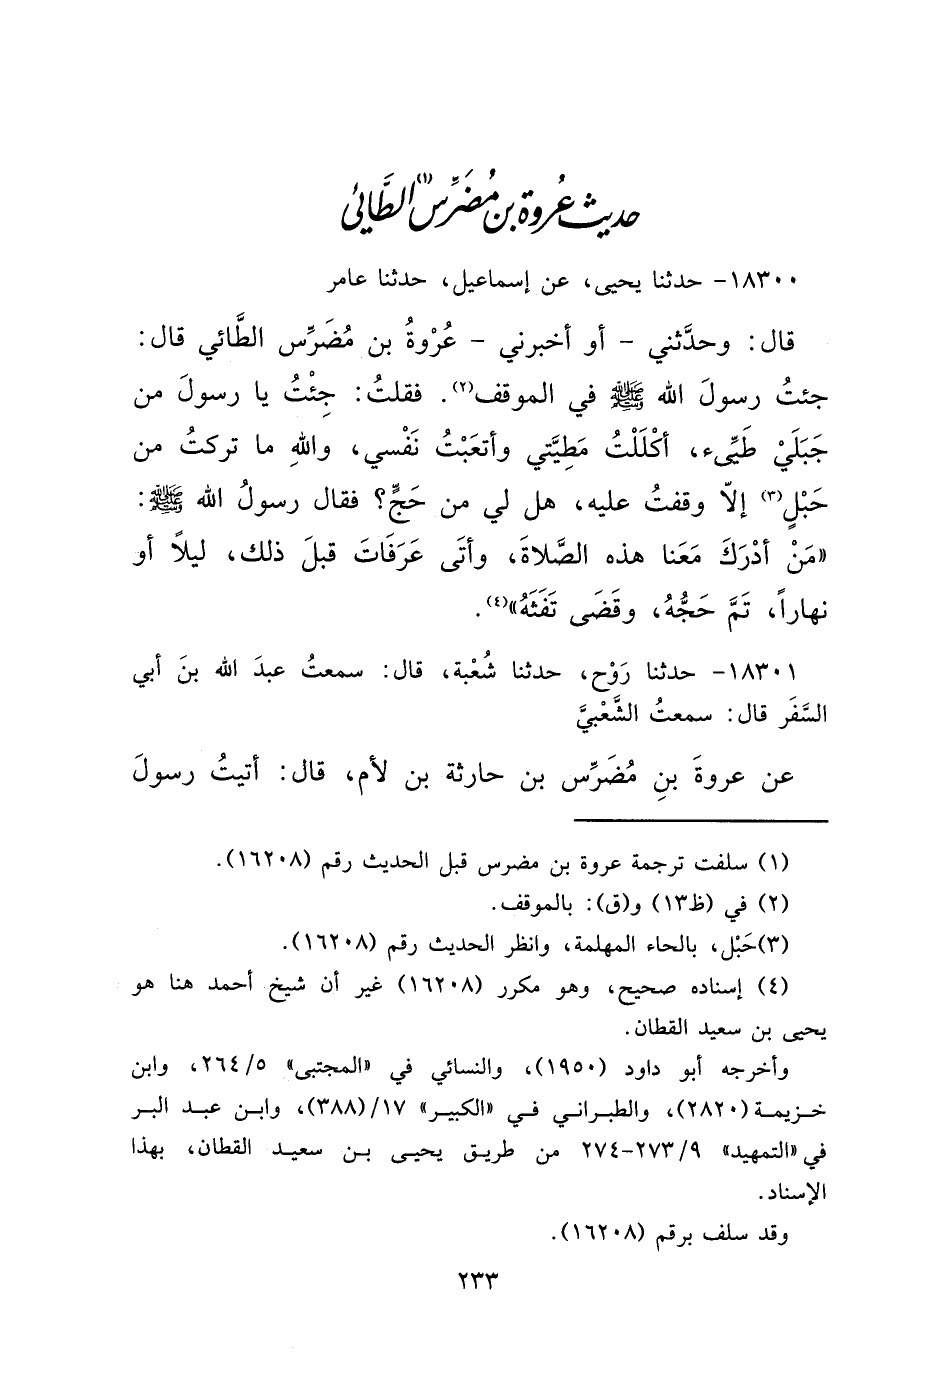 حديث عُروة بن مُضَرِّس(١) الطَّائيّ
١٨٣٠٠- حدثنا يحيى، عن إسماعيل، حدثنا عامر
قال: وحدَّثني - أو أخبرني - عُرْوةُ بن مُضَرِّس الطَّائي قال:
جئتُ رسولَ الله ﷺ في الموقف(٢). فقلتُ: جِئْتُ يا رسولَ من
جَبَلَيْ طَيِّىء، أكْلَلْتُ مَطِيَّتي وأتعَبْتُ نَفْسي، واللهِ ما تركتُ من
حَبْلٍ(٣) إلاّ وقفتُ عليه، هل لي من حَجٍّ؟ فقال رسولُ الله ﷺ:
«مَنْ أدْرَكَ مَعَنا هذه الصَّلاةَ، وأتَى عَرَفَاتَ قبلَ ذلك، ليلاً أو
نهاراً، تَمَّ حَجُّهُ، وقَضَى تَفَثَهُ»(٤).
١٨٣٠١- حدثنا رَوْح، حدثنا شُعْبة، قال: سمعتُ عبدَ الله بنَ أبي
السَّفَر قال: سمعتُ الشَّعْبيَّ
عن عروةَ بنِ مُضَرِّس بن حارثة بن لأم، قال: أتيتُ رسولَ
(١) سلفت ترجمة عروة بن مضرس قبل الحديث رقم (١٦٢٠٨).
(٢) في (ظ١٣) و(ق): بالموقف.
(٣)حَبْل، بالحاء المهلمة، وانظر الحديث رقم (١٦٢٠٨).
(٤) إسناده صحيح، وهو مكرر (١٦٢٠٨) غير أن شيخ أحمد هنا هو
يحيى بن سعيد القطان.
وأخرجه أبو داود (١٩٥٠)، والنسائي في «المجتبى» ٢٦٤/٥، وابن
خزيمة (٢٨٢٠)، والطبراني في «الكبير» ١٧/(٣٨٨)، وابن عبد البر
في «التمهيد» ٢٧٣/٩-٢٧٤ من طريق يحيى بن سعيد القطان، بهذا
الإسناد.
وقد سلف برقم (١٦٢٠٨).
٢٣٣